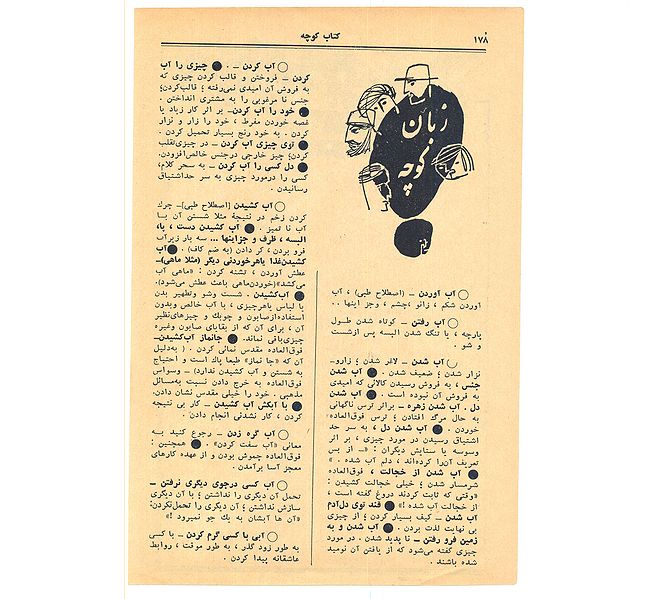 ۱۷۸
کتاب کوچه
زبان
کوچه
○ آب آوردن ــ (اصطلاح طبی) ، آب
آوردن شکم ، زانو ،چشم ، وجز اینها ..
○ آب رفتن ــ کوتاه شدن طـول
پارچه ، یا تنگ شدن البسه پس ازشست
و شو .
○ آب شدن ــ لاغر شدن ؛ زارو-
نزار شدن ؛ ضعیف شدن . ● آب شدن
جنس ، به فروش رسیدن کالائی که امیدی
به فروش آن نبوده است . ● آب شدن
دل . آب شدن زهره ــ براثر ترس ناگهانی
به حال مرگ افتادن ؛ ترس فوق‌العاده
خوردن . ● آب شدن دل ، به سر حد
اشتیاق رسیدن در مورد چیزی ، بر اثر
وسوسه یا ستایش دیگران : «ــ از بس
تعریف آن‌را کرده‌اند ، دلم آب شده . »
● آب شدن از خجالت ، فوق‌العاده
شرمسار شدن ؛ خیلی خجالت کشیدن :
«وقتی که ثابت کردند دروغ گفته است ،
از خجالت آب شده !» ● قند توی دل‌آدم
آب شدن ــ کیف بسیار کردن ؛ از چیزی
بی نهایت لذت بردن . ● آب شدن و به
زمین فرو رفتن ــ نا پدید شدن . در مورد
چیزی گفته می‌شود که از یافتن آن نومید
شده باشند .
○ آب کردن ــ . ● چیزی را آب
کردن ــ فروختن و قالب کردن چیزی که
به فروش آن امیدی نمی‌رفته ؛ قالب‌کردن؛
جنس نا مرغوبی را به مشتری انداختن .
● خود را آب کردن ــ بر اثر کار زیاد یا
غصه خوردن مفرط ، خود را زار و نزار
کردن . به خود رنج بسیار تحمیل کردن .
● توی چیزی آب کردن ــ در چیزی‌تقلب
کردن؛ چیز خارجی درجنس خالص‌افزودن.
● دل کسی را آب کردن ــ به سحر کلام،
کسی را درمورد چیزی به سر حداشتیاق
رسانیدن .
○ آب کشیدن [اصطلاح طبی] ــ چرك
کردن زخم در نتیجهٔ مثلا شستن آن بـا
آب نا تمیز . ● آب کشیدن دست ، پا،
البسه ، ظرف و جزاینها ... سه بار زیرآب
فرو بردن ، کر دادن (به ضم کاف) . ● آب
کشیدن‌غذا یاهرخوردنی دیگر (مثلا ماهی) ــ
عطش آوردن ، تشنه کردن : «ماهی آب
می‌کشد»(خوردن‌ماهی باعث عطش می‌شود).
● آب‌کشیدن . شست وشو وتطهیر بدن
یا لباس یاهرچیزی ، با آب خالص وبدون
استفاده‌ازصابون و چوبك و چیزهای‌نظیر
آن ، برای آن که از بقایای صابون وغیره
چیزی‌باقی نماند. ● جانماز آب‌کشیدن ــ
فوق‌العاده مقدس نمائی کردن . ( به‌دلیل
آن که «جا نماز» طبعاً پاك است و احتیاج
به شستن و آب کشیدن ندارد) ــ وسواس
فوق‌العاده به خرج دادن نسبت به‌مسائل
مذهبی . خود را خیلی مقدس نشان دادن.
● با آبکش آب کشیدن ــ کار بی نتیجه
کردن ، کار نشدنی انجام دادن .
○ آب گره زدن ــ رجوع کنید بـه
معانی «آب سفت کردن» . ● همچنین :
فوق‌العاده چموش بودن و از عهده کارهای
معجز آسا برآمدن .
○ آب کسی درجوی دیگری نرفتن ــ
تحمل آن دیگری را نداشتن ؛ با آن دیگری
سازش نداشتن ؛ دیگری را تحمل‌نکردن:
«آن ها آبشان به یك جو نمیرود !»
○ آبی با کسی گرم کردن ــ با کسی
به طور زود گذر ، به طور موقت ، روابط
عاشقانه پیدا کردن .